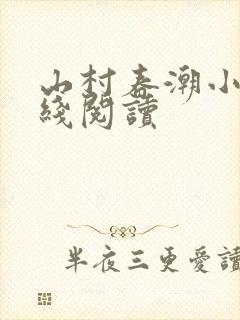 山村春潮小
綫閱讀
半夜三更愛讀